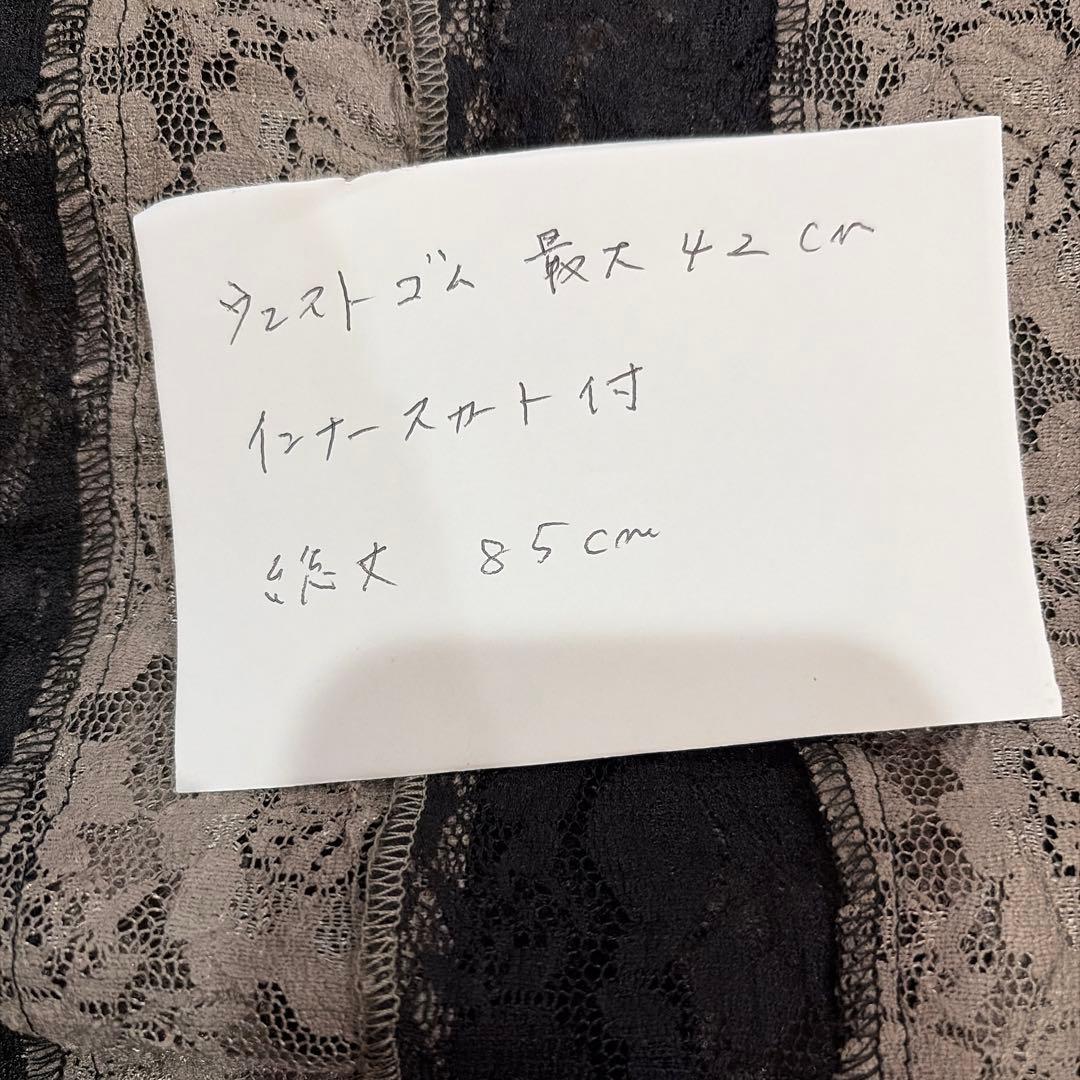 ウエストゴム 最大42cm
インナースカート付
総丈 85cm